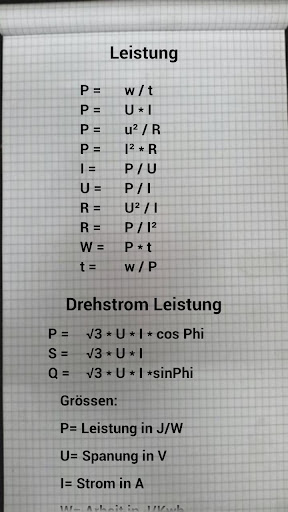 Leistung
P = w / t
P = U * I
P = u² / R
P = I² * R
I = P / U
U = P / I
R = U² / I
R = P / I²
W = P * t
t = w / P
Drehstrom Leistung
P = √3 * U * I * cos Phi
S = √3 * U * I
Q = √3 * U * I *sinPhi
Grössen:
P= Leistung in J/W
U= Spanung in V
I= Strom in A